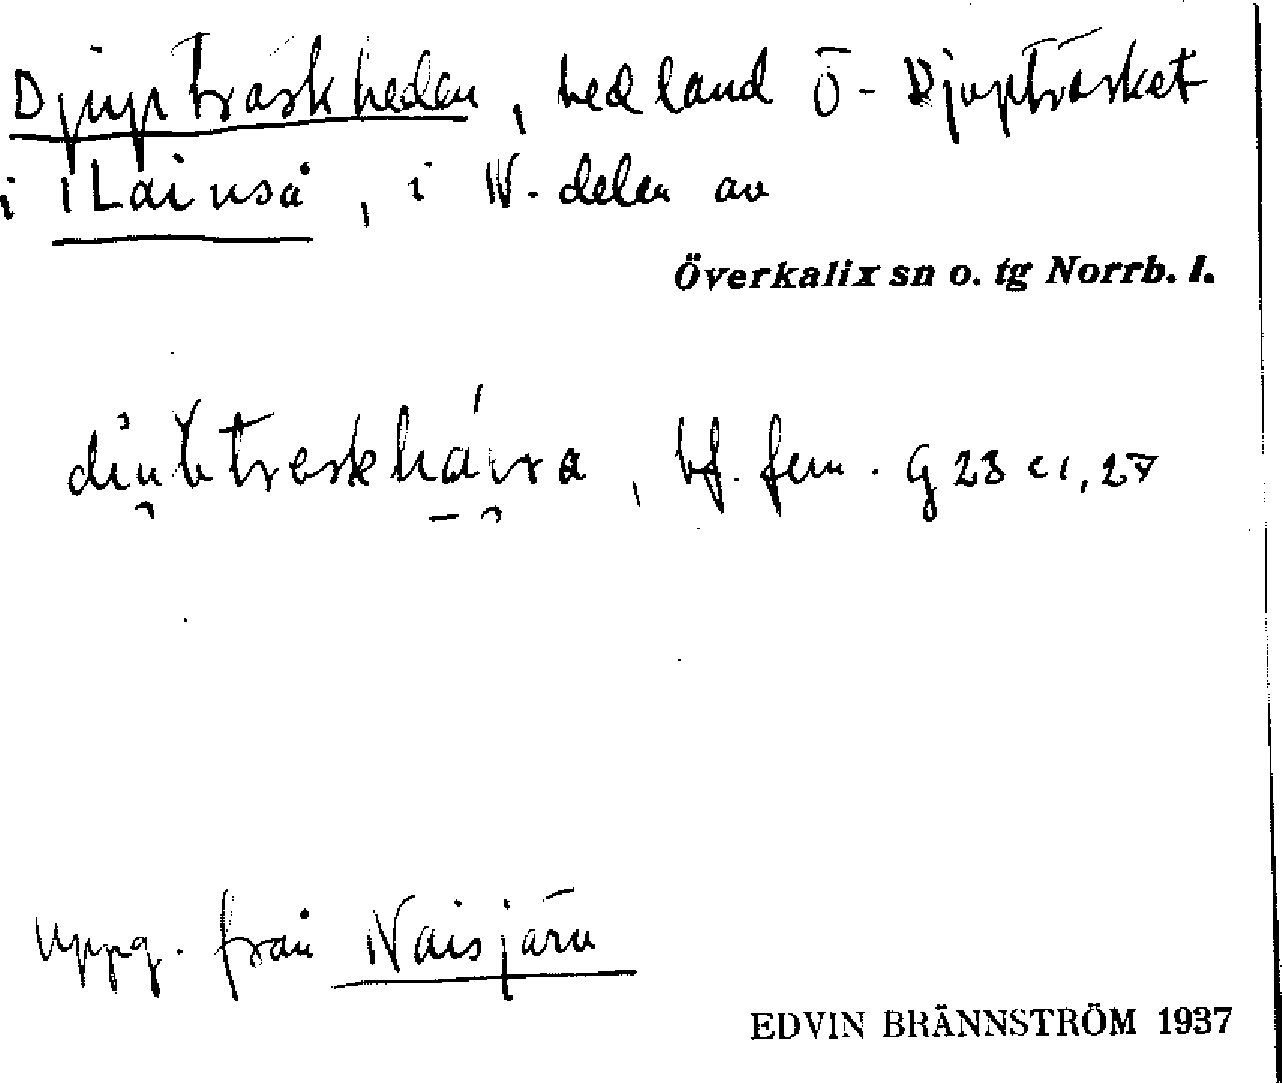 Djupträskheden, hedland Ö- Djupträsket
i Lainså, i N-delen av
Överkalix sn o. tg Norrb. l.
bf. fem. G 23
Uppg. från Naisjärv
EDVIN BRÄNNSTRÖM 1937